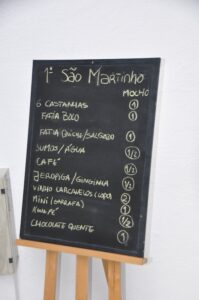 1º São Martinho
MOCHO
6 CASTANHAS 1
FATIA BOLO 1
FATIA QUICHE/SALGADO 1
SUMOS/ÁGUA 1/2
CAFÉ 1/2
JEROPIGA/GINGINHA 1/2
VINHO CARCAVELOS (COPO) 2
MINI (GARRAFA) 1
CHOCOLATE QUENTE 1